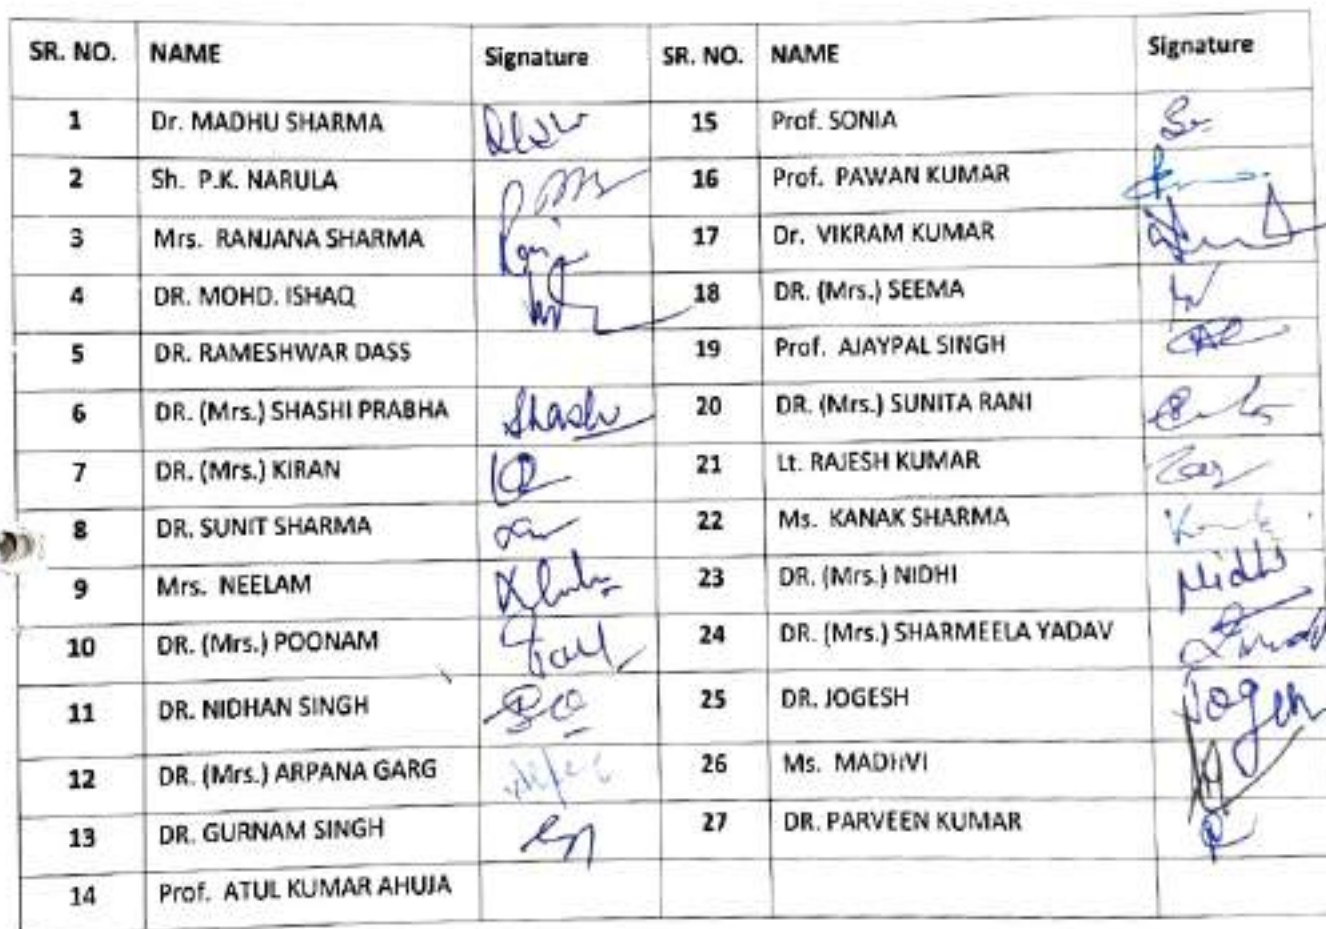 SR. NO. NAME Signature SR. NO. NAME Signature
1 Dr. MADHU SHARMA 15 Prof. SONIA
2 Sh. P.K. NARULA 16 Prof. PAWAN KUMAR
3 Mrs. RANJANA SHARMA 17 Dr. VIKRAM KUMAR
4 DR. MOHD. ISHAQ 18 DR. (Mrs.) SEEMA
5 DR. RAMESHWAR DASS 19 Prof. AJAYPAL SINGH
6 DR. (Mrs.) SHASHI PRABHA Shashi 20 DR. (Mrs.) SUNITA RANI
7 DR. (Mrs.) KIRAN 21 Lt. RAJESH KUMAR
8 DR. SUNIT SHARMA 22 Ms. KANAK SHARMA
9 Mrs. NEELAM 23 DR. (Mrs.) NIDHI Nidhi
10 DR. (Mrs.) POONAM 24 DR. (Mrs.) SHARMEELA YADAV
11 DR. NIDHAN SINGH 25 DR. JOGESH Jogesh
12 DR. (Mrs.) ARPANA GARG 26 Ms. MADHVI
13 DR. GURNAM SINGH 27 DR. PARVEEN KUMAR
14 Prof. ATUL KUMAR AHUJA